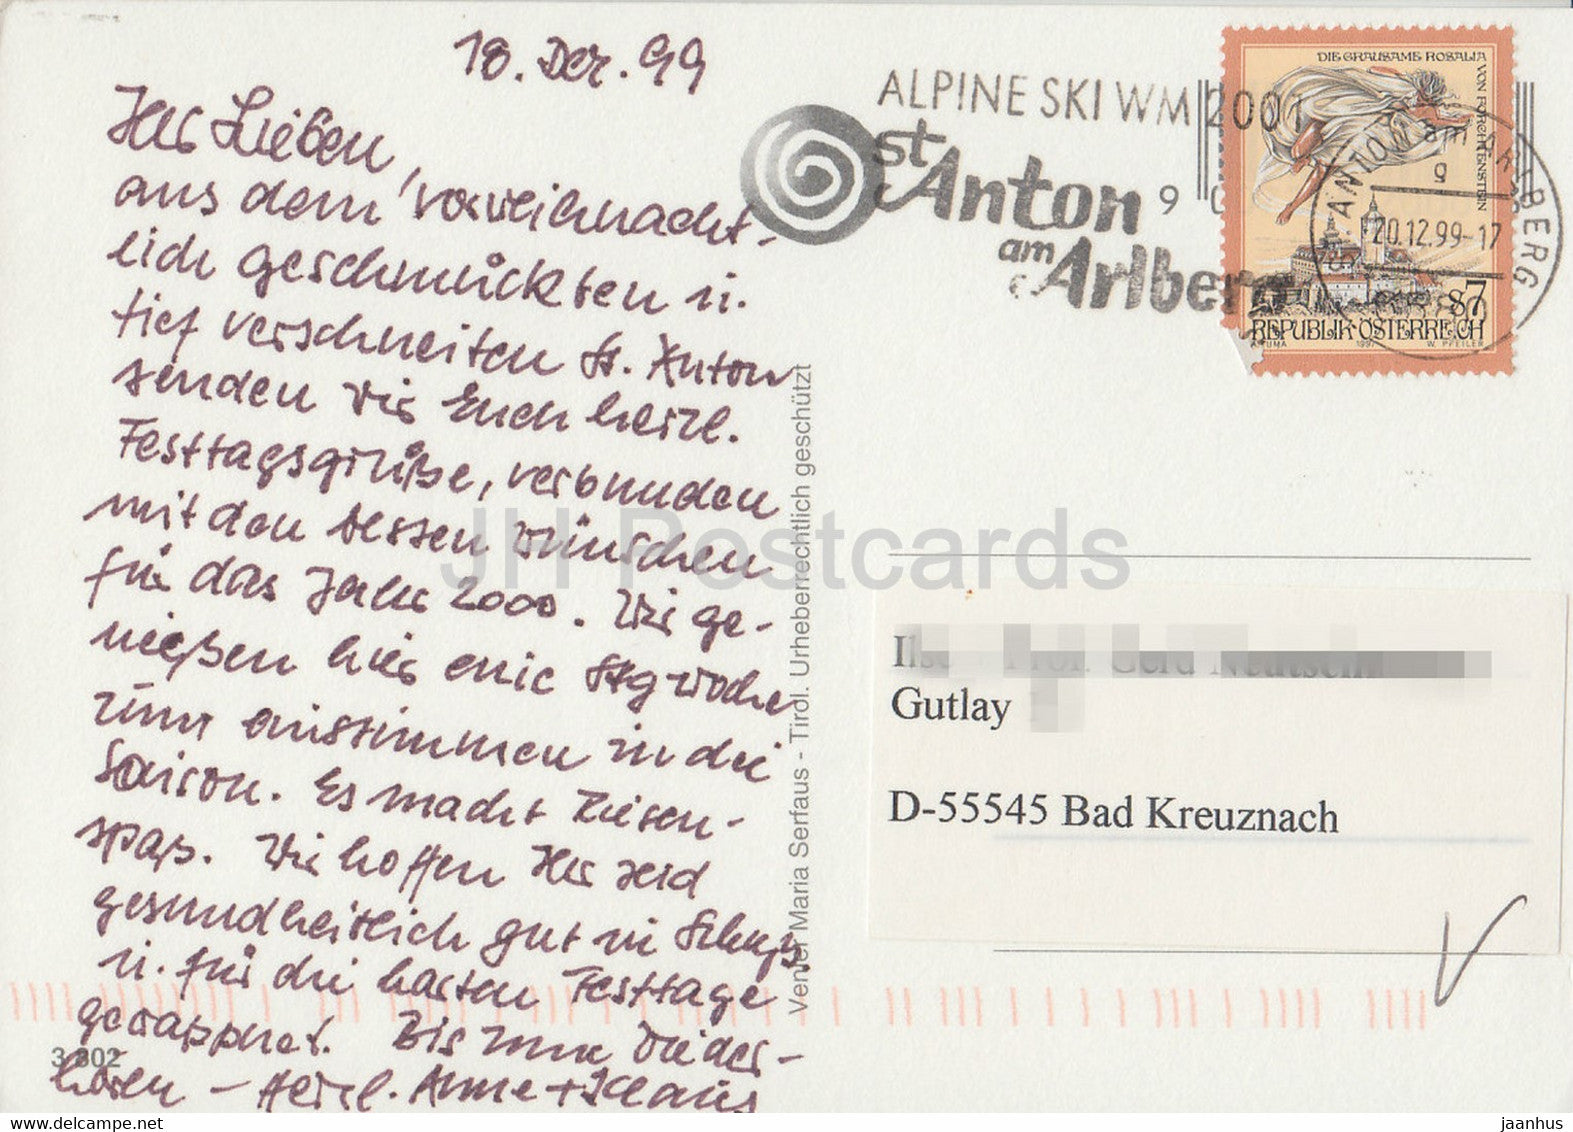 18. Dez. 99
Ihr Lieben,
aus dem vorweihnacht-
lich geschmückten u.
tief verschneiten St. Anton
senden wir Euch herzl.
Festtagsgrüße, verbunden
mit den besten Wünschen
für das Jahr 2000. Wir ge-
nießen hier eine Skiwoche
zum einstimmen in die
Saison. Es macht Riesen-
spaß. Wir hoffen Ihr seid
gesundheitlich gut in Schuß
u. für die harten Festtage
gewappnet. Bis zum Wieder-
hören – Herzl. Anne + Klaus
3 802
Verlag Maria Serfaus - Tirol. Urheberrechtlich geschützt
ALPINE SKI WM 2001
St. Anton
am
Arlberg
9
DIE GRAUSAME ROSALIA
VON FORCHTENSTEIN
S7
REPUBLIK·ÖSTERREICH
1997 W. PFEILER
ST. ANTON am ARLBERG
g
20.12.99-17
Ilse
Prof. Gerd
Gutlay
D-55545 Bad Kreuznach
JH Postcards
delcampe.net
jaanhus